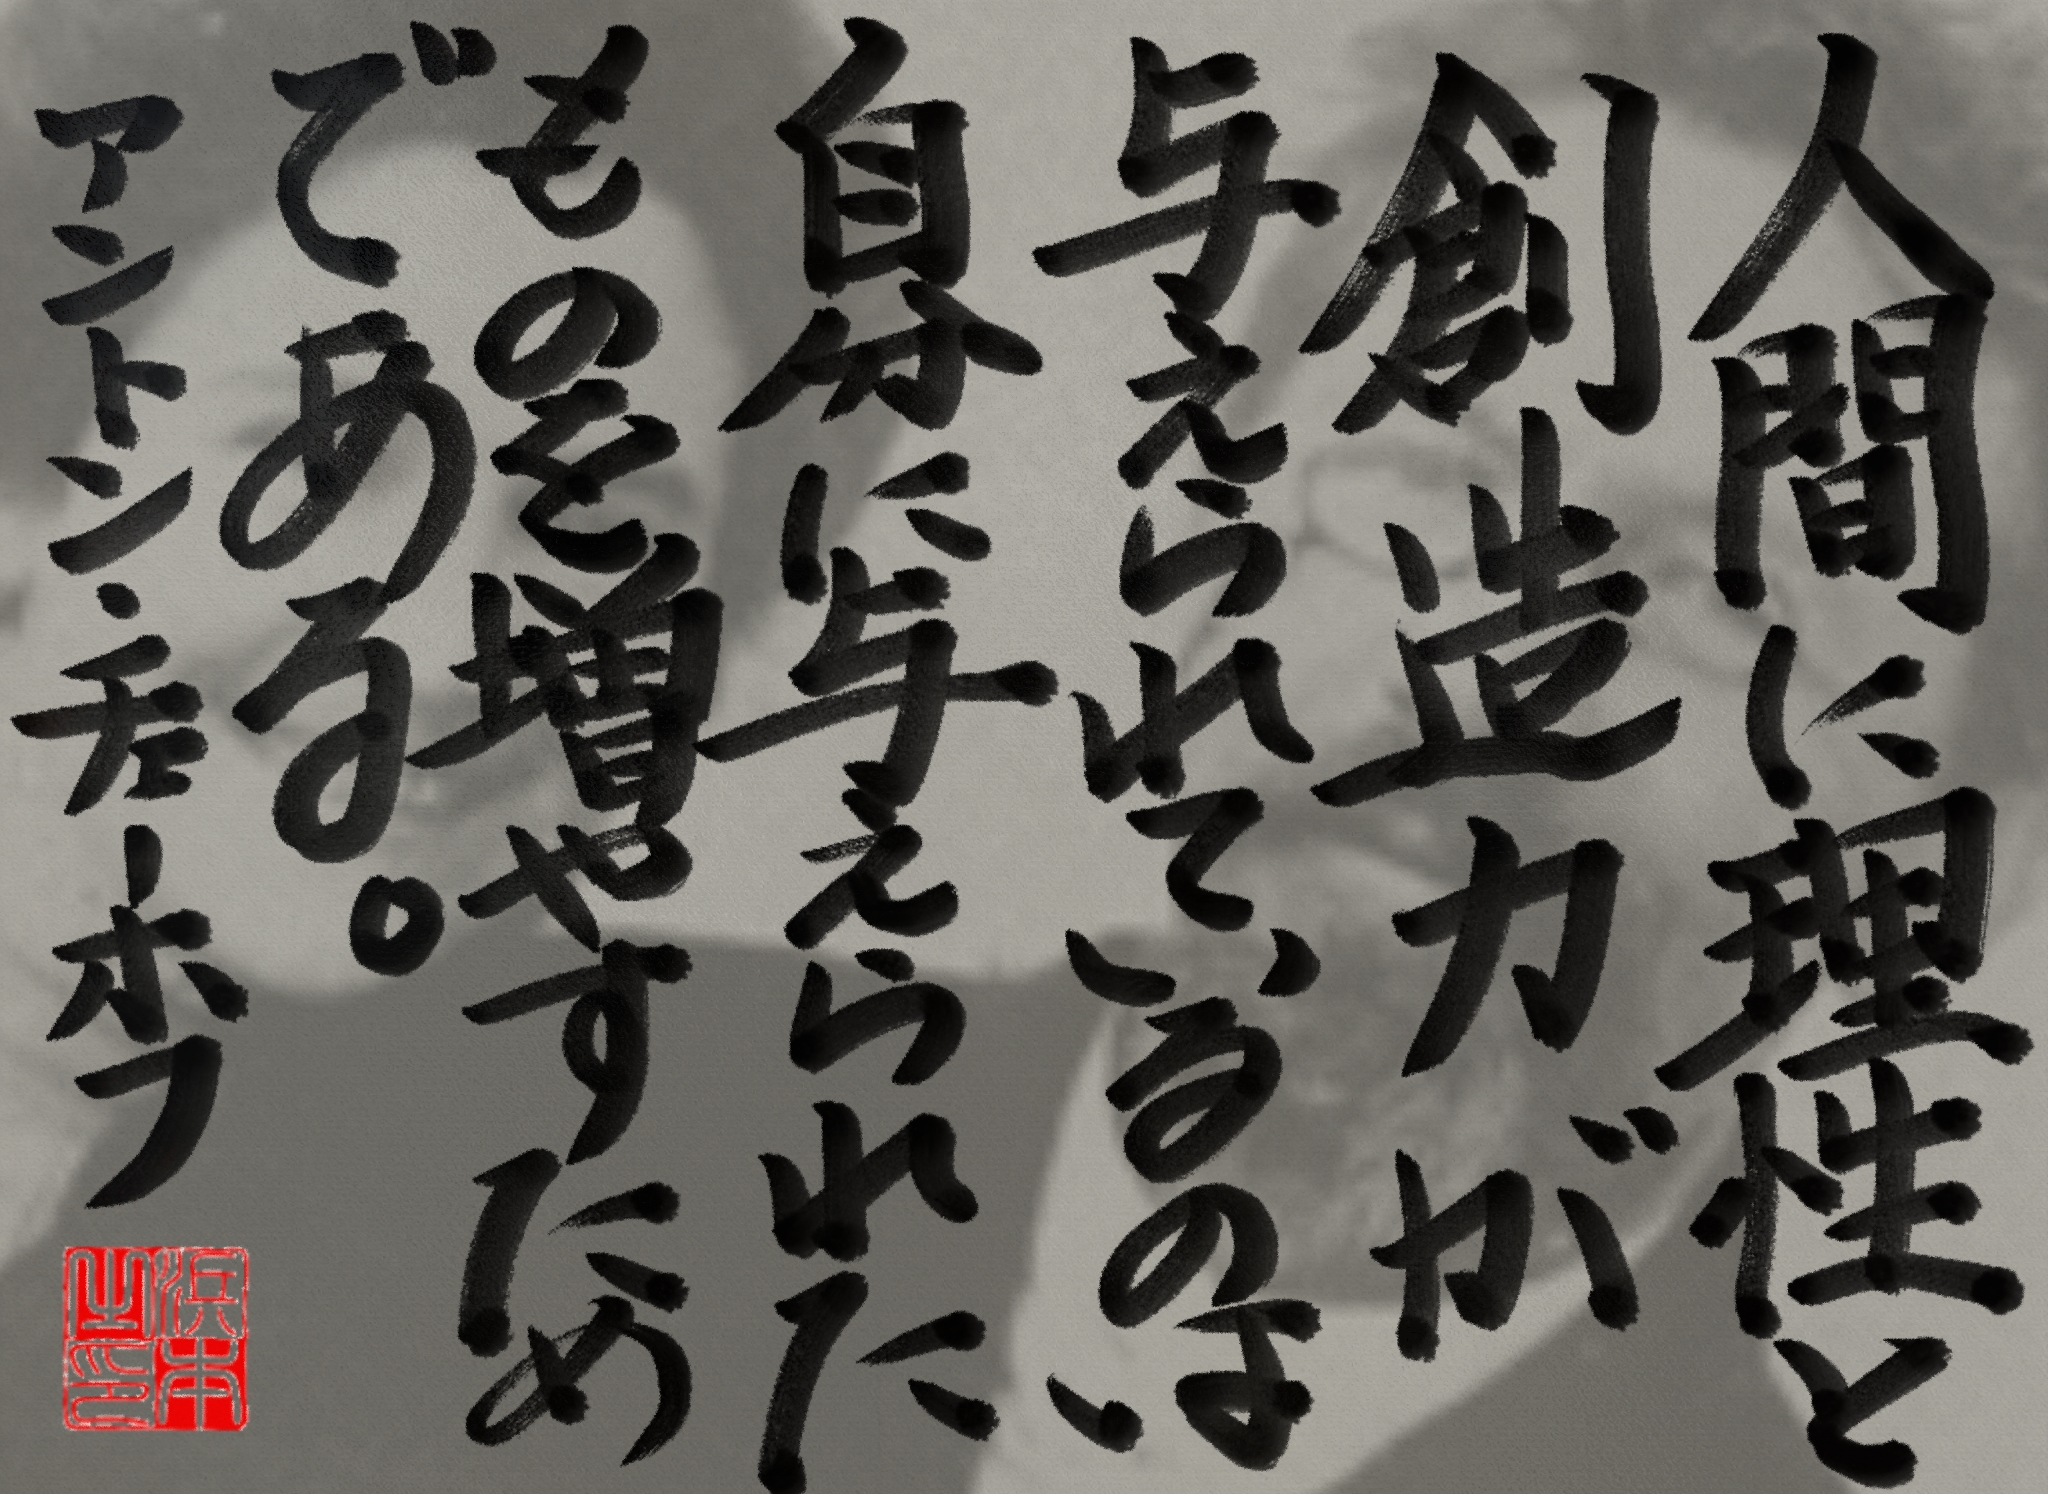 人間に理性と
創造力が
与えられているのは、
自分に与えられた
ものを増やすため
である。
アントン・チェーホフ
浜本
之印